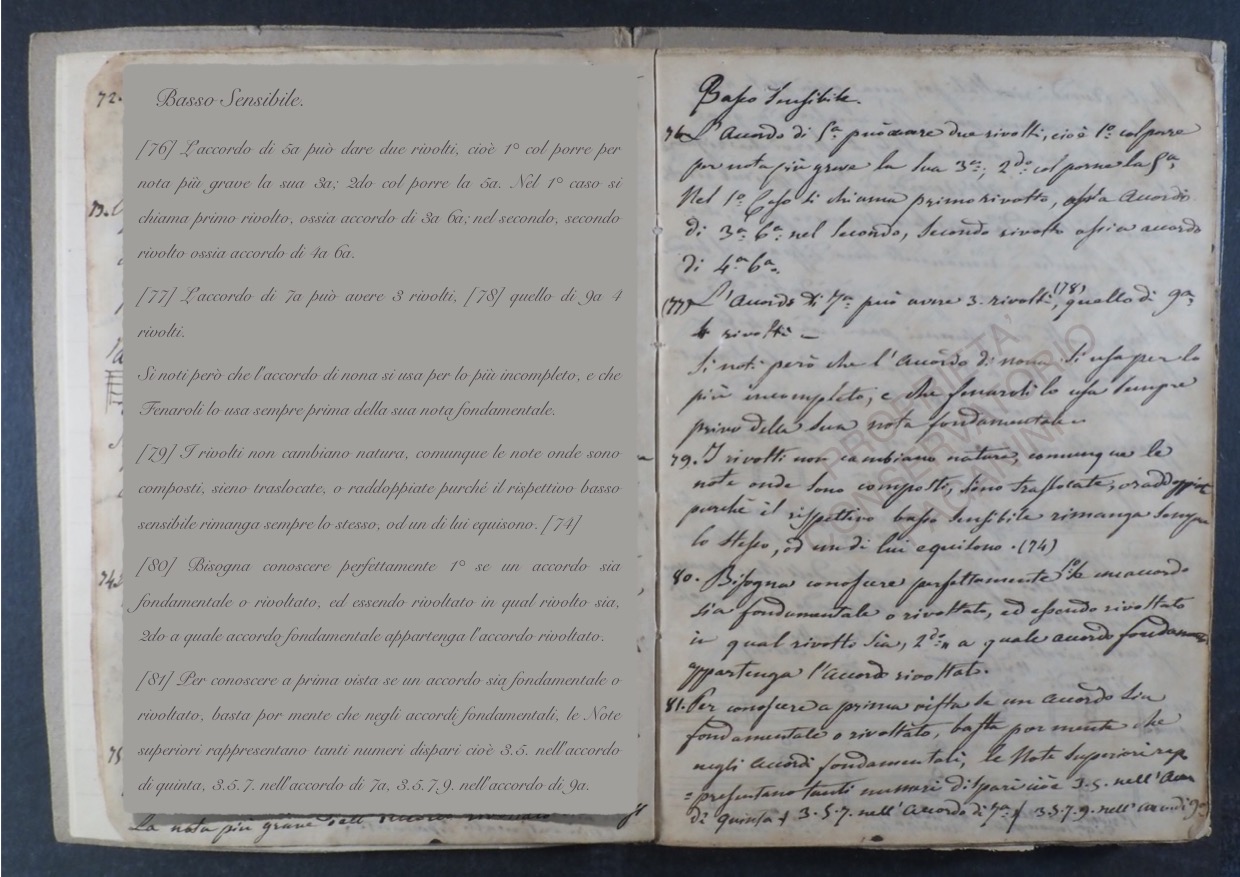 72.
73.
74.
75
Basso Sensibile.
[76] L'accordo di 5a può dare due rivolti, cioè 1° col porre per
nota più grave la sua 3a; 2do col porre la 5a. Nel 1° caso si
chiama primo rivolto, ossia accordo di 3a 6a; nel secondo, secondo
rivolto ossia accordo di 4a 6a.
[77] L'accordo di 7a può avere 3 rivolti, [78] quello di 9a 4
rivolti.
Si noti però che l'accordo di nona si usa per lo più incompleto, e che
Fenaroli lo usa sempre prima della sua nota fondamentale.
[79] I rivolti non cambiano natura, comunque le note onde sono
composti, sieno traslocate, o raddoppiate purché il rispettivo basso
sensibile rimanga sempre lo stesso, od un di lui equisono. [74]
[80] Bisogna conoscere perfettamente 1° se un accordo sia
fondamentale o rivoltato, ed essendo rivoltato in qual rivolto sia,
2do a quale accordo fondamentale appartenga l'accordo rivoltato.
[81] Per conoscere a prima vista se un accordo sia fondamentale o
rivoltato, basta por mente che negli accordi fondamentali, le Note
superiori rappresentano tanti numeri dispari cioè 3.5. nell'accordo
di quinta, 3.5.7. nell'accordo di 7a, 3.5.7.9. nell'accordo di 9a.
La nota più grave
Basso Sensibile.
76 L'Accordo di 5a può dare due rivolti, cioè 1° col porre
per nota più grave la sua 3a; 2do col porre la 5a.
Nel 1° Caso si chiama primo rivolto, ossia accordo
di 3a 6a nel secondo, secondo rivolto ossia accordo
di 4a 6a.
(77) L'Accordo di 7a può avere 3. rivolti, (78) quello di 9a,
4 rivolti –
Si noti però che l'accordo di nona si usa per lo
più incompleto, e che fenaroli lo usa sempre
prima della sua nota fondamentale.
79. I rivolti non cambiano natura, comunque le
note onde sono composti, sieno traslocate, o raddoppiate
purchè il rispettivo basso sensibile rimanga sempre
lo stesso, od un di lui equisono. (74)
80. Bisogna conoscere perfettamente 1° se un accordo
sia fondamentale o rivoltato, ed essendo rivoltato
in qual rivolto sia, 2do a quale accordo fondamen
appartenga l'accordo rivoltato.
81. Per conoscere a prima vista se un accordo sia
fondamentale o rivoltato, basta por mente che
negli accordi fondamentali, le Note superiori rap
=presentano tanti numeri dispari cioè 3.5. nell'accor
di quinta, 3.5.7. nell'accordo di 7a, 3.5.7.9. nell'accordi 9a
PROPRIETA'
CONSERVATORIO
PAGANINI